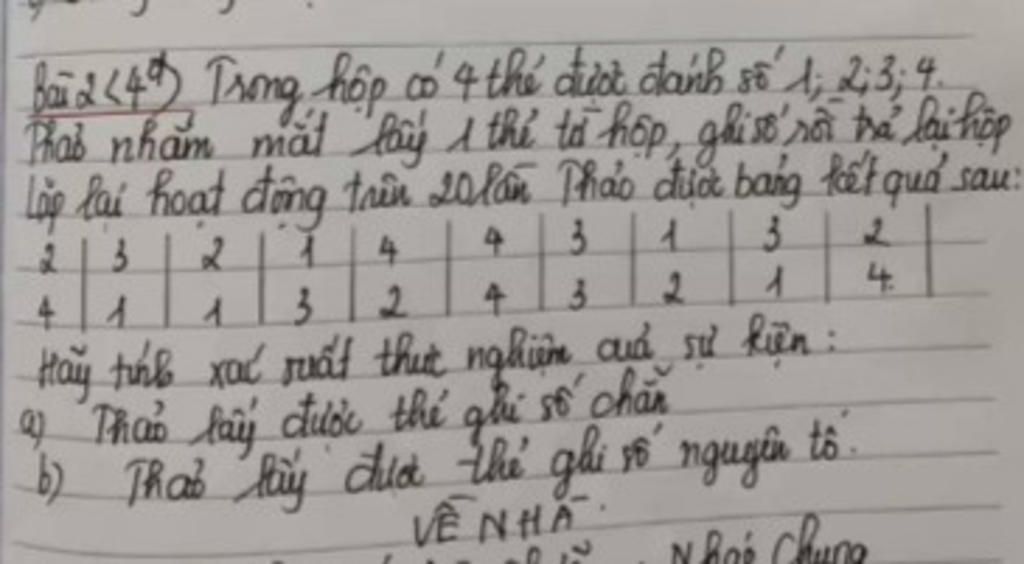 Bài 2 (4đ) Trong hộp có 4 thẻ được đánh số 1; 2; 3; 4.
Thảo nhắm mắt lấy 1 thẻ từ hộp, ghi số rồi trả lại hộp
Lặp lại hoạt động trên 20 lần Thảo được bảng kết quả sau:
2 3 2 1 4 4 3 1 3 2
4 1 1 3 2 4 3 2 1 4
Hãy tính xác suất thực nghiệm của sự kiện:
a) Thảo lấy được thẻ ghi số chẵn
b) Thảo lấy được thẻ ghi số nguyên tố.
VỀ NHÀ
Chung